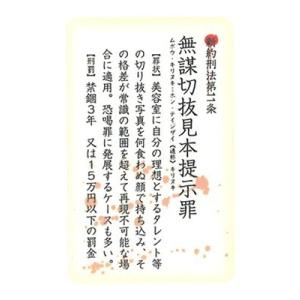 新約刑法第11条
無謀切抜見本提示罪
ムボウ・キリヌキ・ホン・テイジザイ【通称】キリヌキ
【罪状】美容室に自分の理想とするタレント等
の切り抜き写真を何食わぬ顔で持ち込み、そ
の格差が常識の範囲を超えて再現不可能な場
合に適用。恐喝罪に発展するケースも多い。
【刑罰】禁錮3年 又は15万円以下の罰金